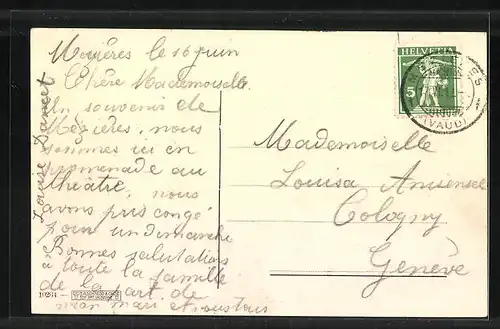 Mézières le 16 juin
Chère Mademoiselle
Un souvenir de
Mézières, nous
sommes ici en
promenade au
théatre, nous
avons pris congé
pour un dimanche
Bonnes salutations
a toute la famille
de la part de
mon mari et
Louise
Mademoiselle
Louisa
Cologny
Genève
HELVETIA
5
MÉZIÈRES
(VAUD)